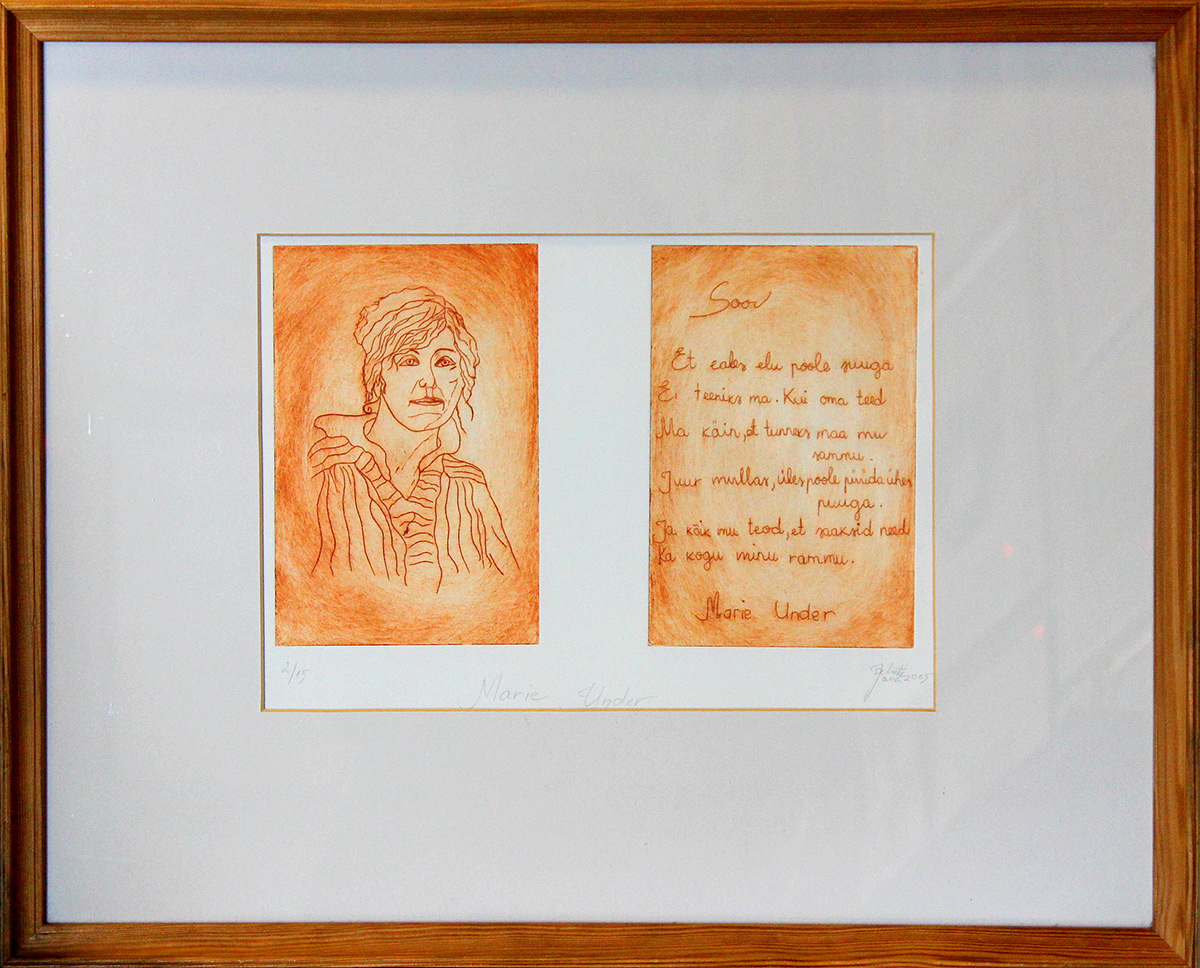 Soov
Et eaks elu poole suuga
Ei teeniks ma. Kui oma teed
Ma käin, et tunneks maa mu
sammu.
Juur mullas, ülespoole püüda ühes
puuga.
Ja kõik mu teod, et saaksid need
Ka kogu minu rammu.
Marie Under
2/15
Marie Under
2005